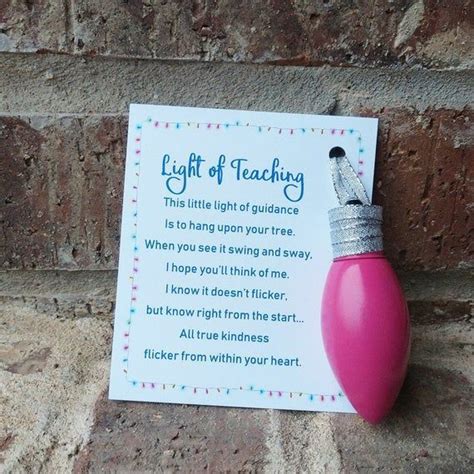 Light of Teaching
This little light of guidance
Is to hang upon your tree.
When you see it swing and sway,
I hope you'll think of me.
I know it doesn't flicker,
but know right from the start...
All true kindness
flicker from within your heart.